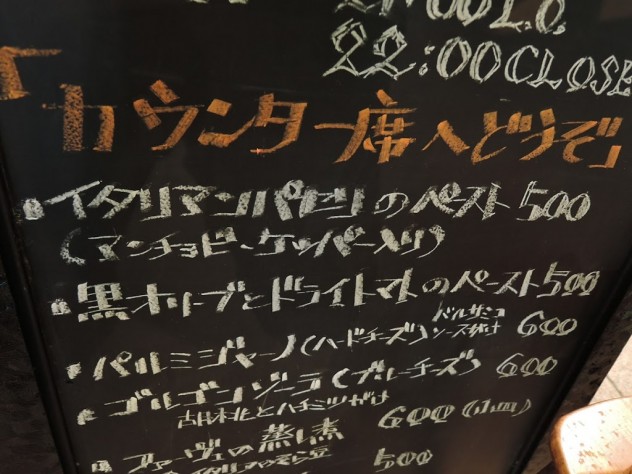 22:00 CLOSE
「カウンター席へどうぞ」
イタリアンパセリのペースト 500
(アンチョビ・ケッパー入り)
黒オリーブとドライトマトのペースト 500
パルミジャーノ(ハードチーズ) バルサミコソースがけ 600
ゴルゴンゾーラ(ブルーチーズ) 600
古田木北とハチミツがけ
ファーヴェの蒸し煮 600
500